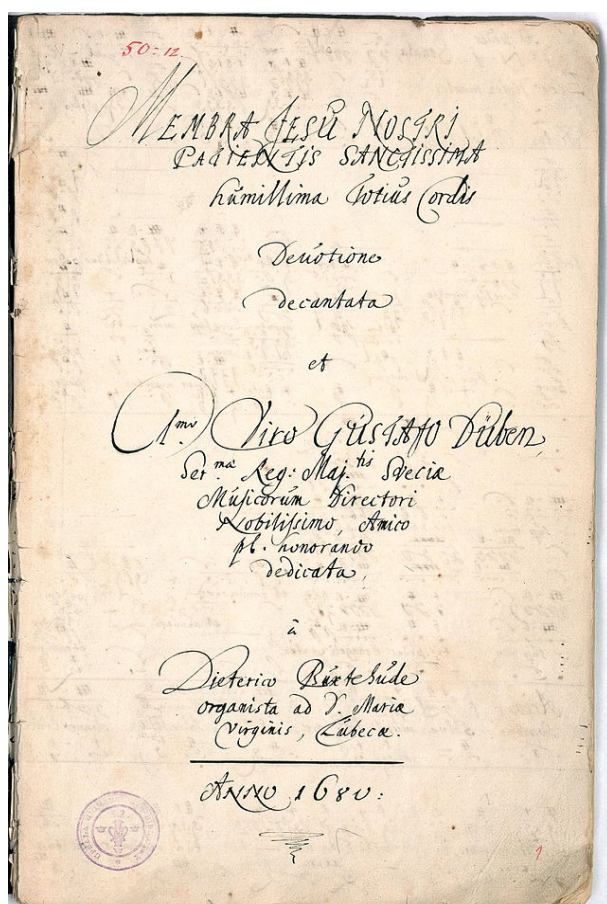 50:12
MEMBRA JESŬ NOSTRI
PATIENTIS SANCTISSIMA
hŭmillima Totiŭs Cordis
Devotione
decantata
et
1mo Viro GŬSTAFO Düben
Serma Reg: Maj.tis Sveciæ
Mŭsicorŭm Directori
Nobilissimo, Amico
pl. honorando
dedicata,
à
Dieterico Bŭxtehŭde
organista ad S. Mariæ
virginis, Lŭbecæ.
ANNO 1680:
1